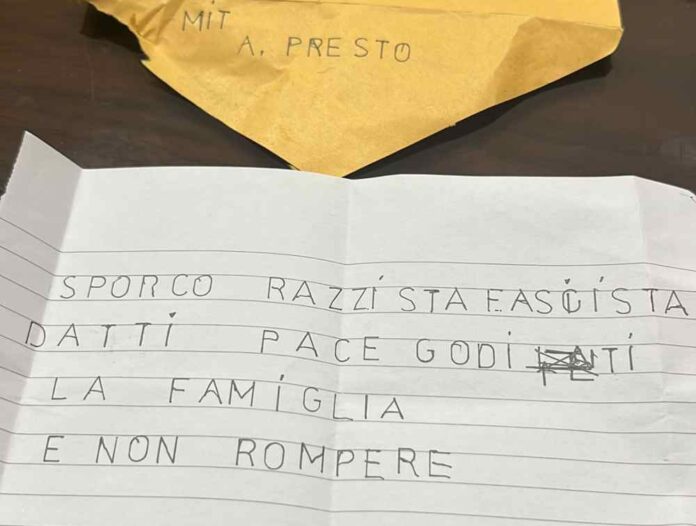 MIT
A. PRESTO
SPORCO RAZZISTA FASCISTA
DATTI PACE GODITI
LA FAMIGLIA
E NON ROMPERE